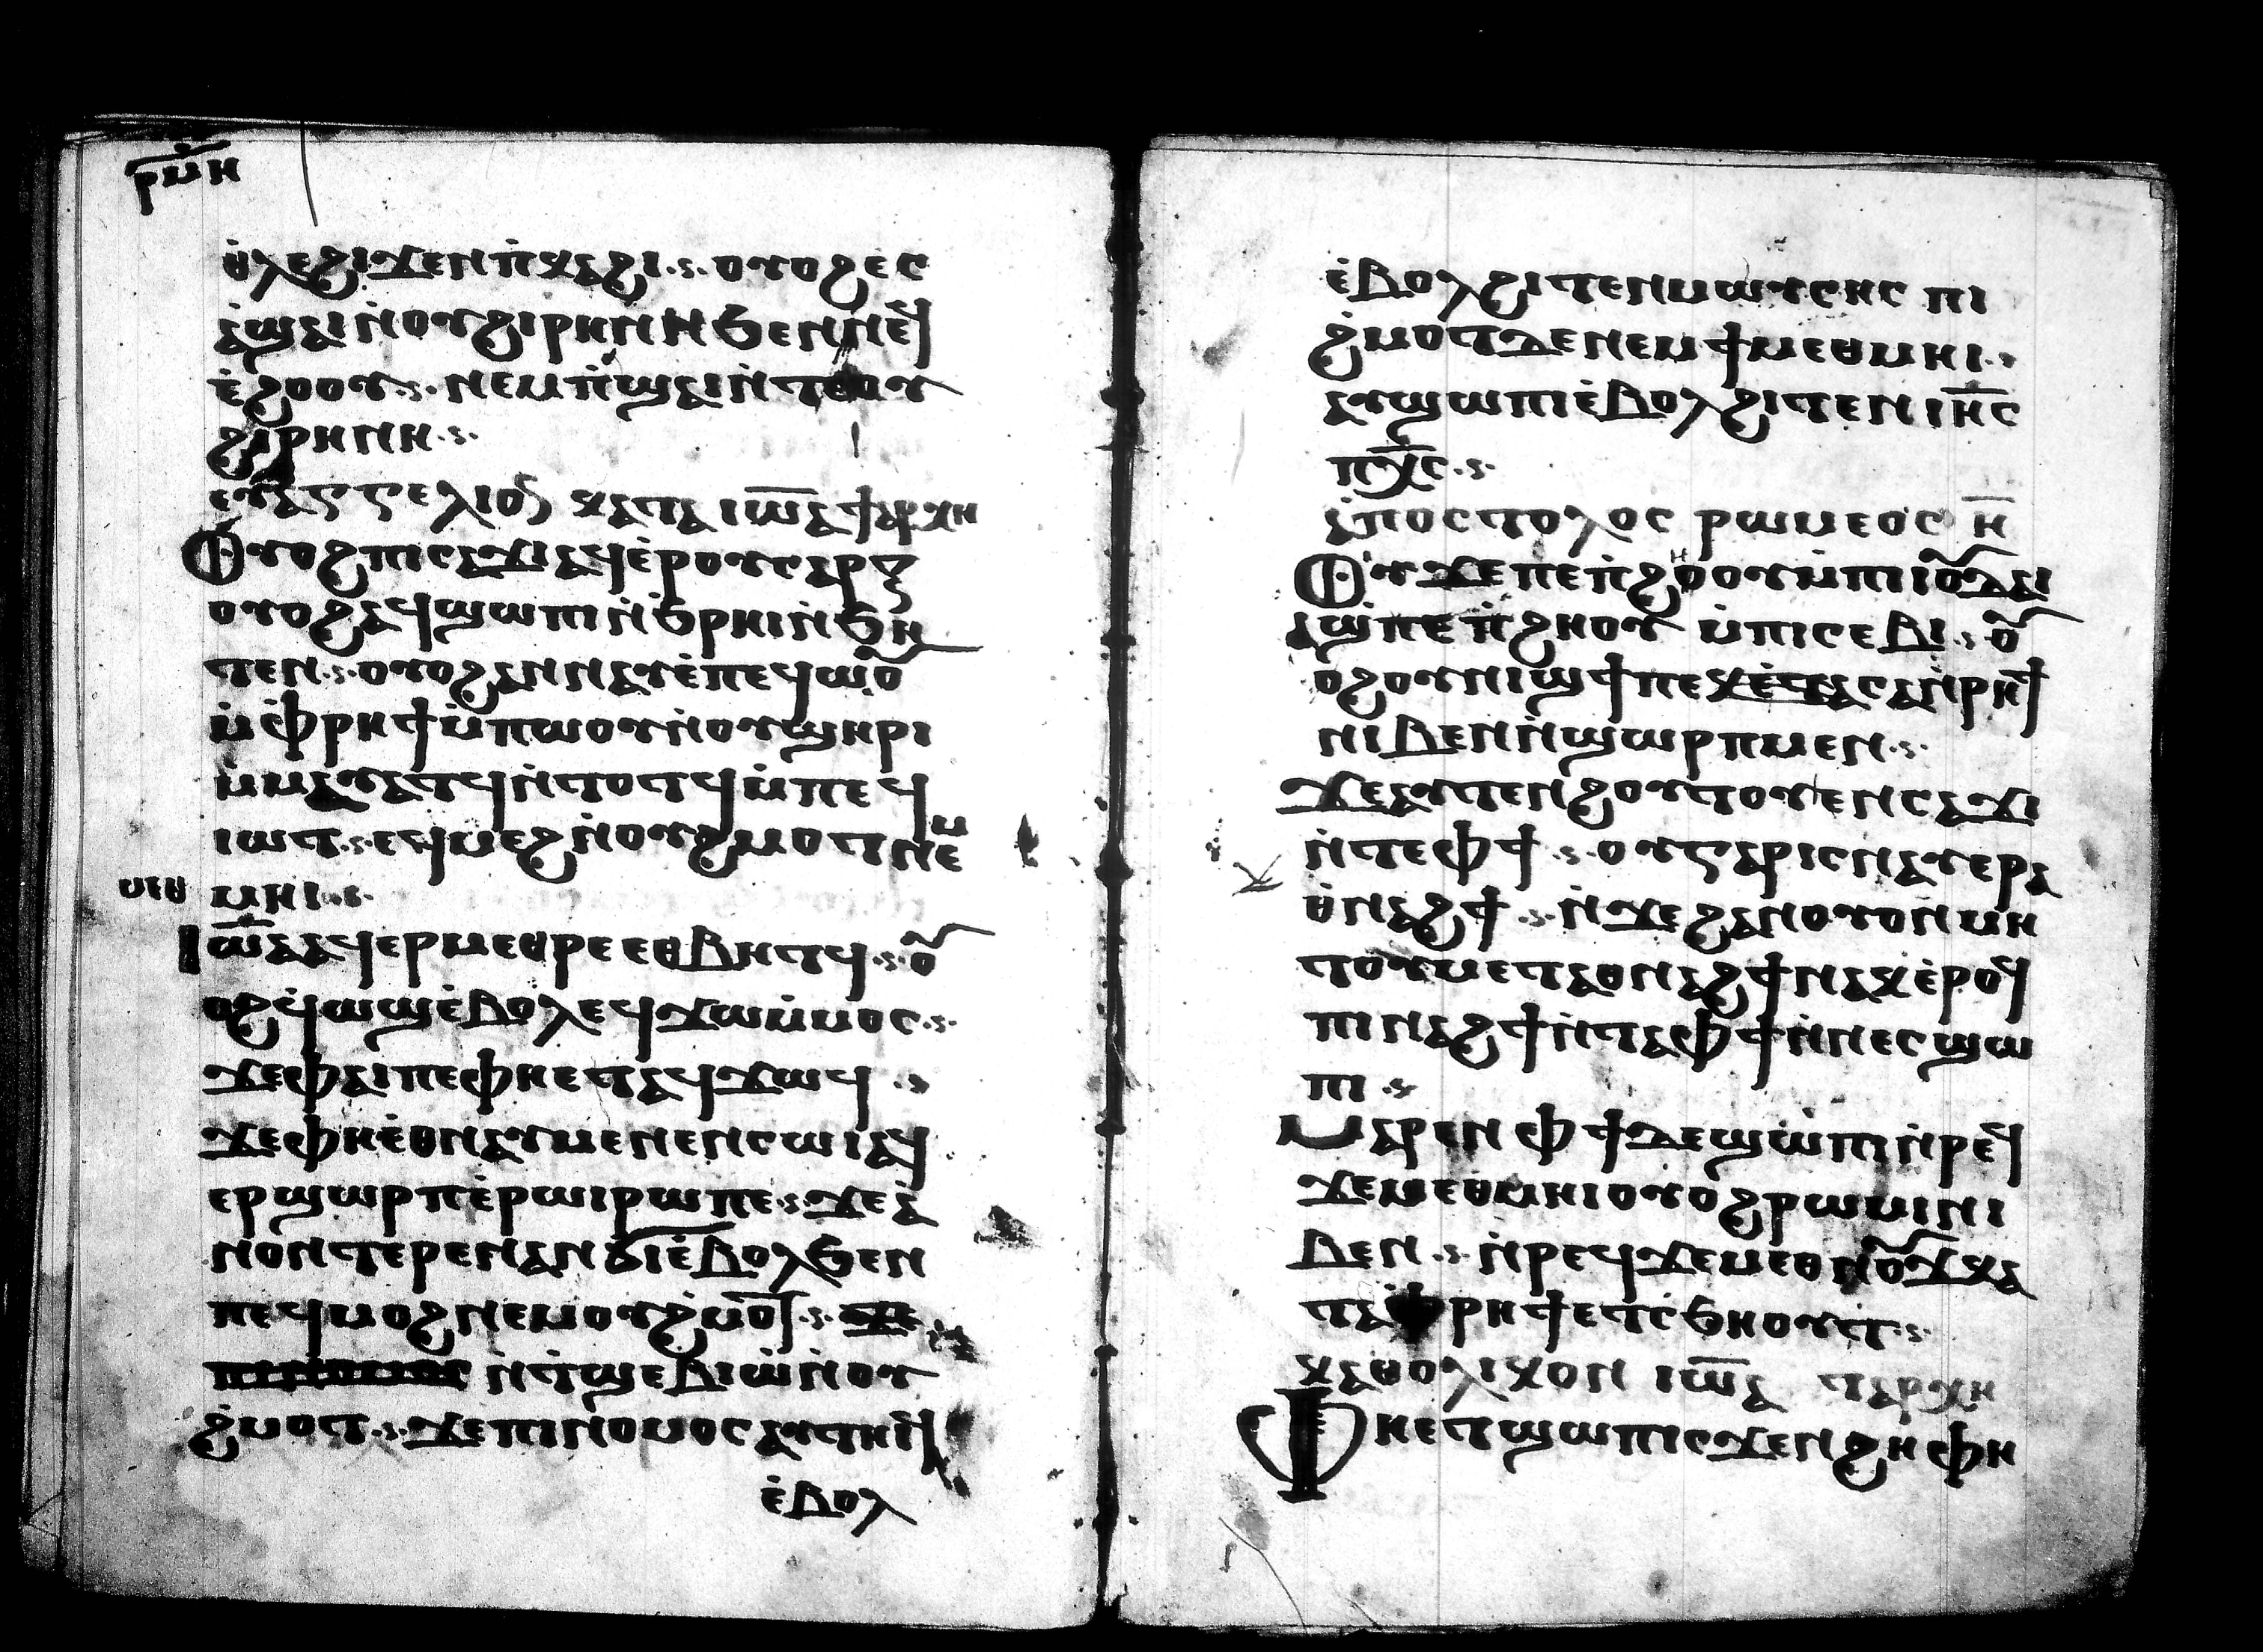 ⲣ̅ⲙ̅ⲏ
ⲑ̀ⲗⲉϩⲓϫⲉⲛⲡ̀ⲕⲁϩⲓ·ⲟⲩⲟϩⲉⲥ
ⲁ̀ϣⲁⲓⲛ̀ⲟⲩϩⲓⲣⲏⲛⲏϧⲉⲛⲛⲉϥ
ⲉ̀ϩⲟⲟⲩ·ⲛⲉⲙⲡ̀ϣⲁⲓⲛ̀ⲧⲉⲟⲩ
ϩⲓⲣⲏⲛⲏ·
ⲉⲩⲁⲅⲅⲉⲗⲓⲟⲛ ⲕⲁⲧⲁ ⲓⲱ̅ⲁ ϯⲁⲣⲭⲏ
Ⲟⲩⲟϩⲡⲓⲥⲁϫⲓⲁϥⲉ̀ⲣⲟⲩⲥⲁⲣⲝ
ⲟⲩⲟϩⲁϥϣⲱⲡⲓⲛ̀ϧⲣⲏⲓⲛ̀ϧⲏ
ⲧⲉⲛ·ⲟⲩⲟϩⲁⲛⲛⲁⲩⲉ̀ⲡⲉϥⲱⲟⲩ
ⲙ̀ⲫ̀ⲣⲏϯⲙ̀ⲡⲱⲟⲩⲛ̀ⲟⲩϣⲏⲣⲓ
ⲙ̀ⲙⲁⲩⲁⲧϥⲛ̀ⲧⲟⲧϥⲙ̀ⲡⲉϥ
ⲓⲱⲧ·ⲉϥⲙⲉϩⲛ̀ⲟⲩϩⲙⲟⲧⲛⲉⲙ
ⲙⲉⲑ ⲙⲏⲓ·
Ⲓⲱ̅ⲁⲁϥⲉⲣⲙⲉⲑⲣⲉⲉⲑⲃⲏⲧϥ·ⲟⲩ
ⲟϩϥ̀ⲱϣⲉ̀ⲃⲟⲗⲉϥϫⲱⲙ̀ⲙⲟⲥ·
ϫⲉⲫⲁⲓⲡⲉⲫⲏⲉⲧⲁϥϫⲱϥ·
ϫⲉⲫⲏⲉ̀ⲑⲛⲁⲩⲙⲉⲛⲉⲛⲥⲱⲓⲁϥ
ⲉⲣϣⲱⲣⲡⲉ̀ⲣⲱⲓⲣⲱⲡⲉ·ϫⲉⲁ
ⲛⲟⲛⲧⲉⲣⲉⲛⲁⲛϭⲓⲉ̀ⲃⲟⲗϧⲉⲛ
ⲡⲉϥⲙⲟϩⲛⲉⲙⲟⲩϩ̀ⲙⲟⲧ·ϫⲉ
ⲡⲓⲛⲟⲙⲟⲥ ⲛ̀ⲧ̀ϣⲉⲃⲓⲱ̀ⲛ̀ⲟⲩ
ϩ̀ⲙⲟⲧ·ϫⲉⲡⲓⲛⲟⲙⲟⲥⲁⲩⲧⲏⲓϥ
ⲉ̀ⲃⲟⲗ
ⲉ̀ⲃⲟⲗϩⲓⲧⲉⲛⲙⲱⲩⲥⲏⲥ ⲡⲓ
ϩ̀ⲙⲟⲧⲇⲉⲛⲉⲙϯⲙⲉⲑⲙⲏⲓ·
ⲁⲩϣⲱⲡⲓⲉ̀ⲃⲟⲗϩⲓⲧⲉⲛⲓⲏ̅ⲥ
ⲡⲭ̅ⲥ·
ⲁ̀ⲡⲟⲥⲧⲟⲗⲟⲥ ⲣⲱⲙⲉⲟⲥ ⲏ̅
Ⲟⲩϫⲉⲡⲉⲡ̀ϩⲏⲟⲟⲩⲙ̀ⲡⲓⲓⲟⲩⲇⲁⲓ
ⲁϣⲡⲉⲡ̀ϩⲏⲟⲩ ⲙ̀ⲡⲓⲥⲉⲃⲓ·ⲟⲩ
ⲟϩⲟⲩⲛⲓϣϯⲡⲉⲕⲉ̀ⲧⲁⲥⲁⲛ̀ⲣⲏϯ
ⲛⲓⲃⲉⲛⲛ̀ϣⲱⲣⲡⲙⲉⲛ·
ϫⲉⲁⲩⲧⲉⲛϩⲟⲩⲧⲟⲩⲉⲛⲥⲁϫⲓ
ⲛ̀ⲧⲉⲫϯ·ⲟⲩⲅⲁⲣⲓⲥⲛⲁⲩⲉⲣⲁ
ⲑ̀ⲛⲁϩϯ·ⲛ̀ϫⲉϩⲁⲛⲟⲩⲟⲛⲙⲏ
ⲧⲟⲩⲙⲉⲧⲁⲑⲛⲁϩϯⲛⲁⲕⲉ̀ⲣⲟϥ
ⲡⲓⲛⲁϩϯⲛ̀ⲧⲁⲫϯⲛ̀ⲛⲉⲥϣⲱ
ⲡⲓ·
Ⲙⲁⲣⲉⲛⲫϯⲇⲉϣⲱ̀ⲡⲓⲛ̀ⲣⲉϥ
ϫⲉⲙⲉⲑⲙⲏⲓⲟⲩⲟϩⲣⲱⲙⲓⲛⲓ
ⲃⲉⲛ·ⲛ̀ⲣⲉϥϫⲉⲙⲉⲑⲛⲟⲩϫⲕⲁ
ⲧⲁⲫⲣⲏϯⲉⲧⲥ̀ϧⲏⲟⲩⲧ·
ⲕⲁⲑⲟⲗⲓⲕⲟⲛ ⲓⲱ̅ⲁ ⲧⲁⲣⲭⲏ
Ⲫⲏⲉⲧϣⲱⲡⲓⲥϫⲉⲛϩⲏⲫⲏ